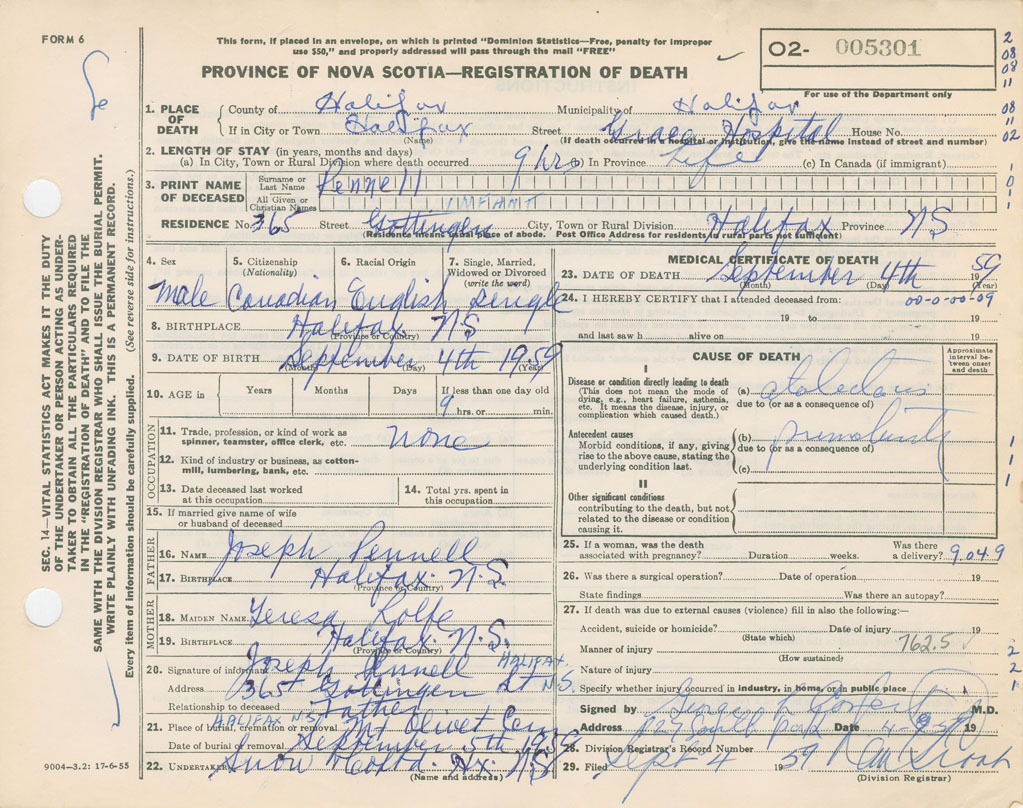 FORM 6
This form, if placed in an envelope, on which is printed "Dominion Statistics—Free, penalty for improper
use $50," and properly addressed will pass through the mail "FREE"
O2- 005301
For use of the Department only
PROVINCE OF NOVA SCOTIA—REGISTRATION OF DEATH
2
08
08
11
08
11
02
1
0
1
1
SEC. 14—VITAL STATISTICS ACT MAKES IT THE DUTY
OF THE UNDERTAKER OR PERSON ACTING AS UNDER-
TAKER TO OBTAIN ALL THE PARTICULARS REQUIRED
IN THE "REGISTRATION OF DEATH" AND TO FILE THE
SAME WITH THE DIVISION REGISTRAR WHO SHALL ISSUE THE BURIAL PERMIT.
WRITE PLAINLY WITH UNFADING INK. THIS IS A PERMANENT RECORD.
Every item of information should be carefully supplied. (See reverse side for instructions.)
1. PLACE OF DEATH County of Halifax Municipality of Halifax
If in City or Town Halifax Street Grace Hospital House No.
(Name) (If death occurred in a hospital or institution, give the name instead of street and number)
2. LENGTH OF STAY (in years, months and days)
(a) In City, Town or Rural Division where death occurred 9 hrs (b) In Province Life (c) In Canada (if immigrant)
3. PRINT NAME OF DECEASED Surname or Last Name Pennell
All Given or Christian Names INFANT
RESIDENCE No. 365 Street Gottingen City, Town or Rural Division Halifax Province NS
(Residence means usual place of abode. Post Office Address for residents in rural parts not sufficient)
4. Sex 5. Citizenship (Nationality) 6. Racial Origin 7. Single, Married, Widowed or Divorced (write the word)
Male Canadian English Single
8. BIRTHPLACE Halifax NS
(Province or Country)
9. DATE OF BIRTH September 4th 1959
(Month) (Day) (Year)
10. AGE in Years Months Days If less than one day old
9 hrs. or min.
OCCUPATION
11. Trade, profession, or kind of work as
spinner, teamster, office clerk, etc. None
12. Kind of industry or business, as cotton-
mill, lumbering, bank, etc.
13. Date deceased last worked
at this occupation
14. Total yrs. spent in
this occupation
15. If married give name of wife
or husband of deceased
FATHER
16. NAME Joseph Pennell
17. BIRTHPLACE Halifax. N.S.
(Province or Country)
MOTHER
18. MAIDEN NAME Teresa Rolfe
19. BIRTHPLACE Halifax. N.S.
(Province or Country)
20. Signature of informant Joseph Pennell
Address 365 Gottingen St HALIFAX. N.S.
Relationship to deceased Father
21. Place of burial, cremation or removal HALIFAX N.S. Mt Olivet Cem
Date of burial or removal September 5th 1959
22. Undertaker Snow Co Ltd. Hx. N.S
(Name and address)
9004—3.2: 17-6-55
MEDICAL CERTIFICATE OF DEATH
23. DATE OF DEATH September 4th 1959
(Month) (Day) (Year)
24. I HEREBY CERTIFY that I attended deceased from: 00-0-00-09
19 to 19
and last saw h alive on 19
CAUSE OF DEATH
Approximate interval between onset and death
I
Disease or condition directly leading to death
(This does not mean the mode of
dying, e.g., heart failure, asthenia,
etc. It means the disease, injury, or
complication which caused death.)
(a) atelectasis
due to (or as a consequence of)
Antecedent causes
Morbid conditions, if any, giving
rise to the above cause, stating the
underlying condition last.
(b) prematurity
due to (or as a consequence of)
(c)
1
1
1
II
Other significant conditions
contributing to the death, but not
related to the disease or condition
causing it.
25. If a woman, was the death
associated with pregnancy? Duration weeks. Was there
a delivery? 9.049
26. Was there a surgical operation? Date of operation 19
State findings Was there an autopsy?
27. If death was due to external causes (violence) fill in also the following:—
Accident, suicide or homicide? Date of injury 19
(Which state)
Manner of injury 762.5
(How sustained)
Nature of injury
2
2
1
Specify whether injury occurred in industry, in home, or in public place
Signed by M.D.
Address Date 4-9-59 19
28. Division Registrar's Record Number
29. Filed Sept 4 1959
(Division Registrar)